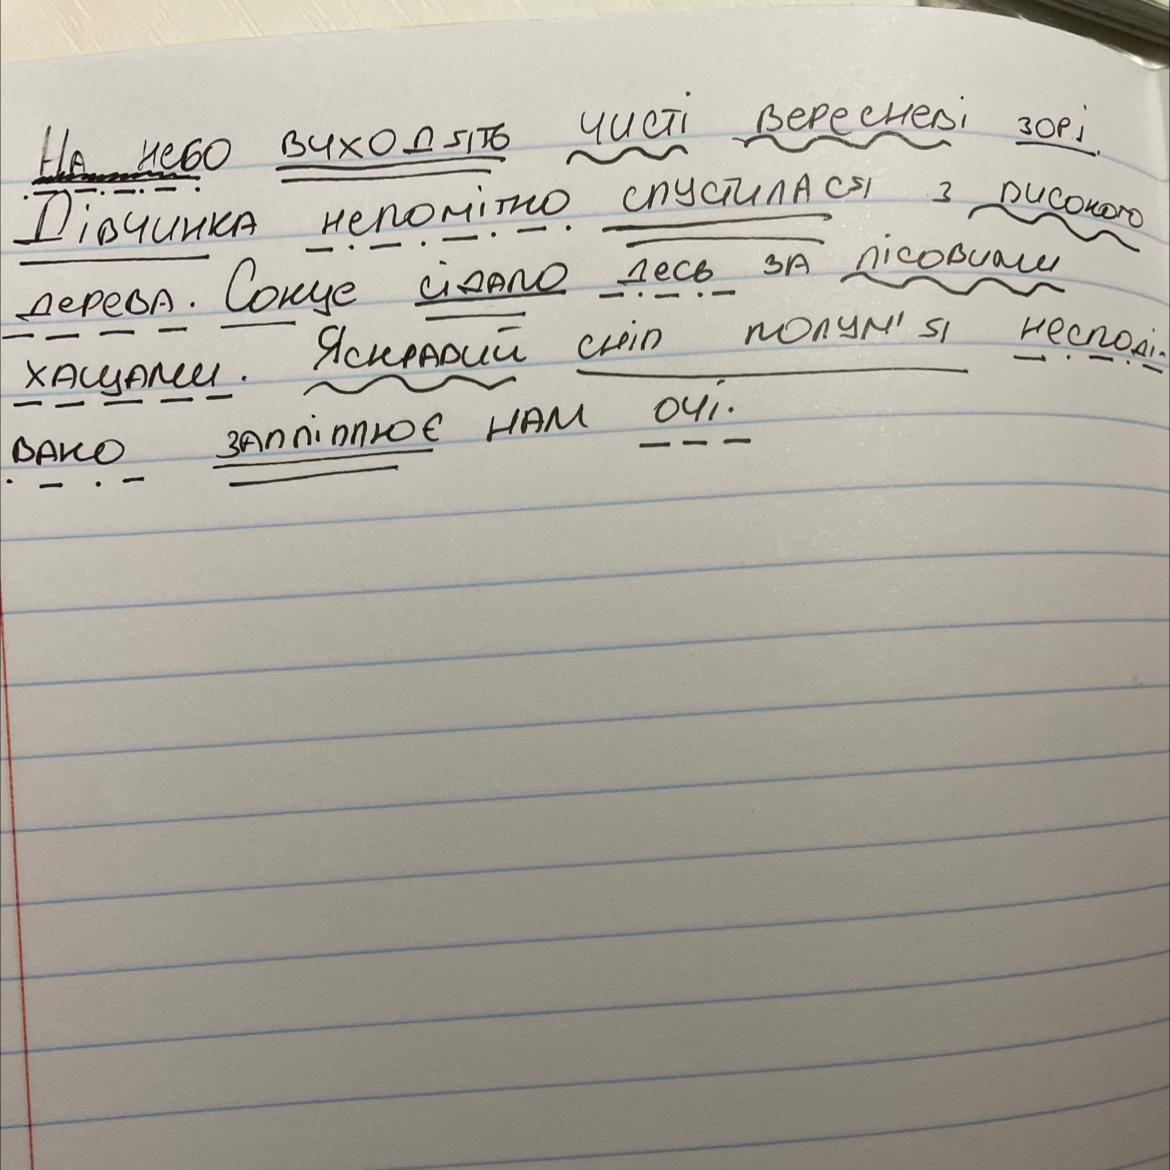 На небо виходять чисті вересневі зорі.
Дівчинка непомітно спустилася з високого
дерева. Сонце сідало десь за лісовими
хащами. Яскравий сніп полум'я несподі-
вано заліплює нам очі.